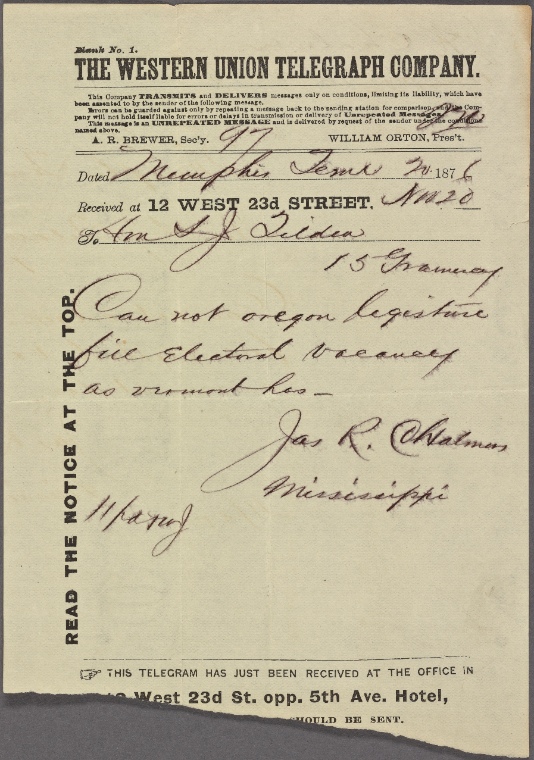 Blank No. 1.
THE WESTERN UNION TELEGRAPH COMPANY.
This Company TRANSMITS and DELIVERS messages only on conditions, limiting its liability, which have
been assented to by the sender of the following message.
Errors can be guarded against only by repeating a message back to the sending station for comparison, and the Com-
pany will not hold itself liable for errors or delays in transmission or delivery of Unrepeated Messages.
This message is an UNREPEATED MESSAGE and is delivered by request of the sender under the conditions
named above.
A. R. BREWER, Sec'y. 97 WILLIAM ORTON, Pres't.
Dated Memphis Tenn 20 1876
Received at 12 WEST 23d STREET, Nov 20
To Hon S J Tilden
15 Gramercy
Can not oregon legisture
fill Electoral vacancy
as vermont has—
Jas R. Chalmers
Mississippi
READ THE NOTICE AT THE TOP.
THIS TELEGRAM HAS JUST BEEN RECEIVED AT THE OFFICE IN
West 23d St. opp. 5th Ave. Hotel,
HOULD BE SENT.